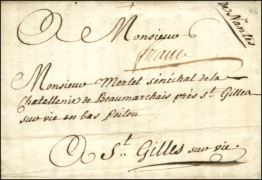 de Nantes
A Monsieur
franc
Monsieur Merlet sénéchal de la
Chatellenie de Beaumarchais près St. Gilles
sur vie en bas poitou
A St. Gilles sur vie